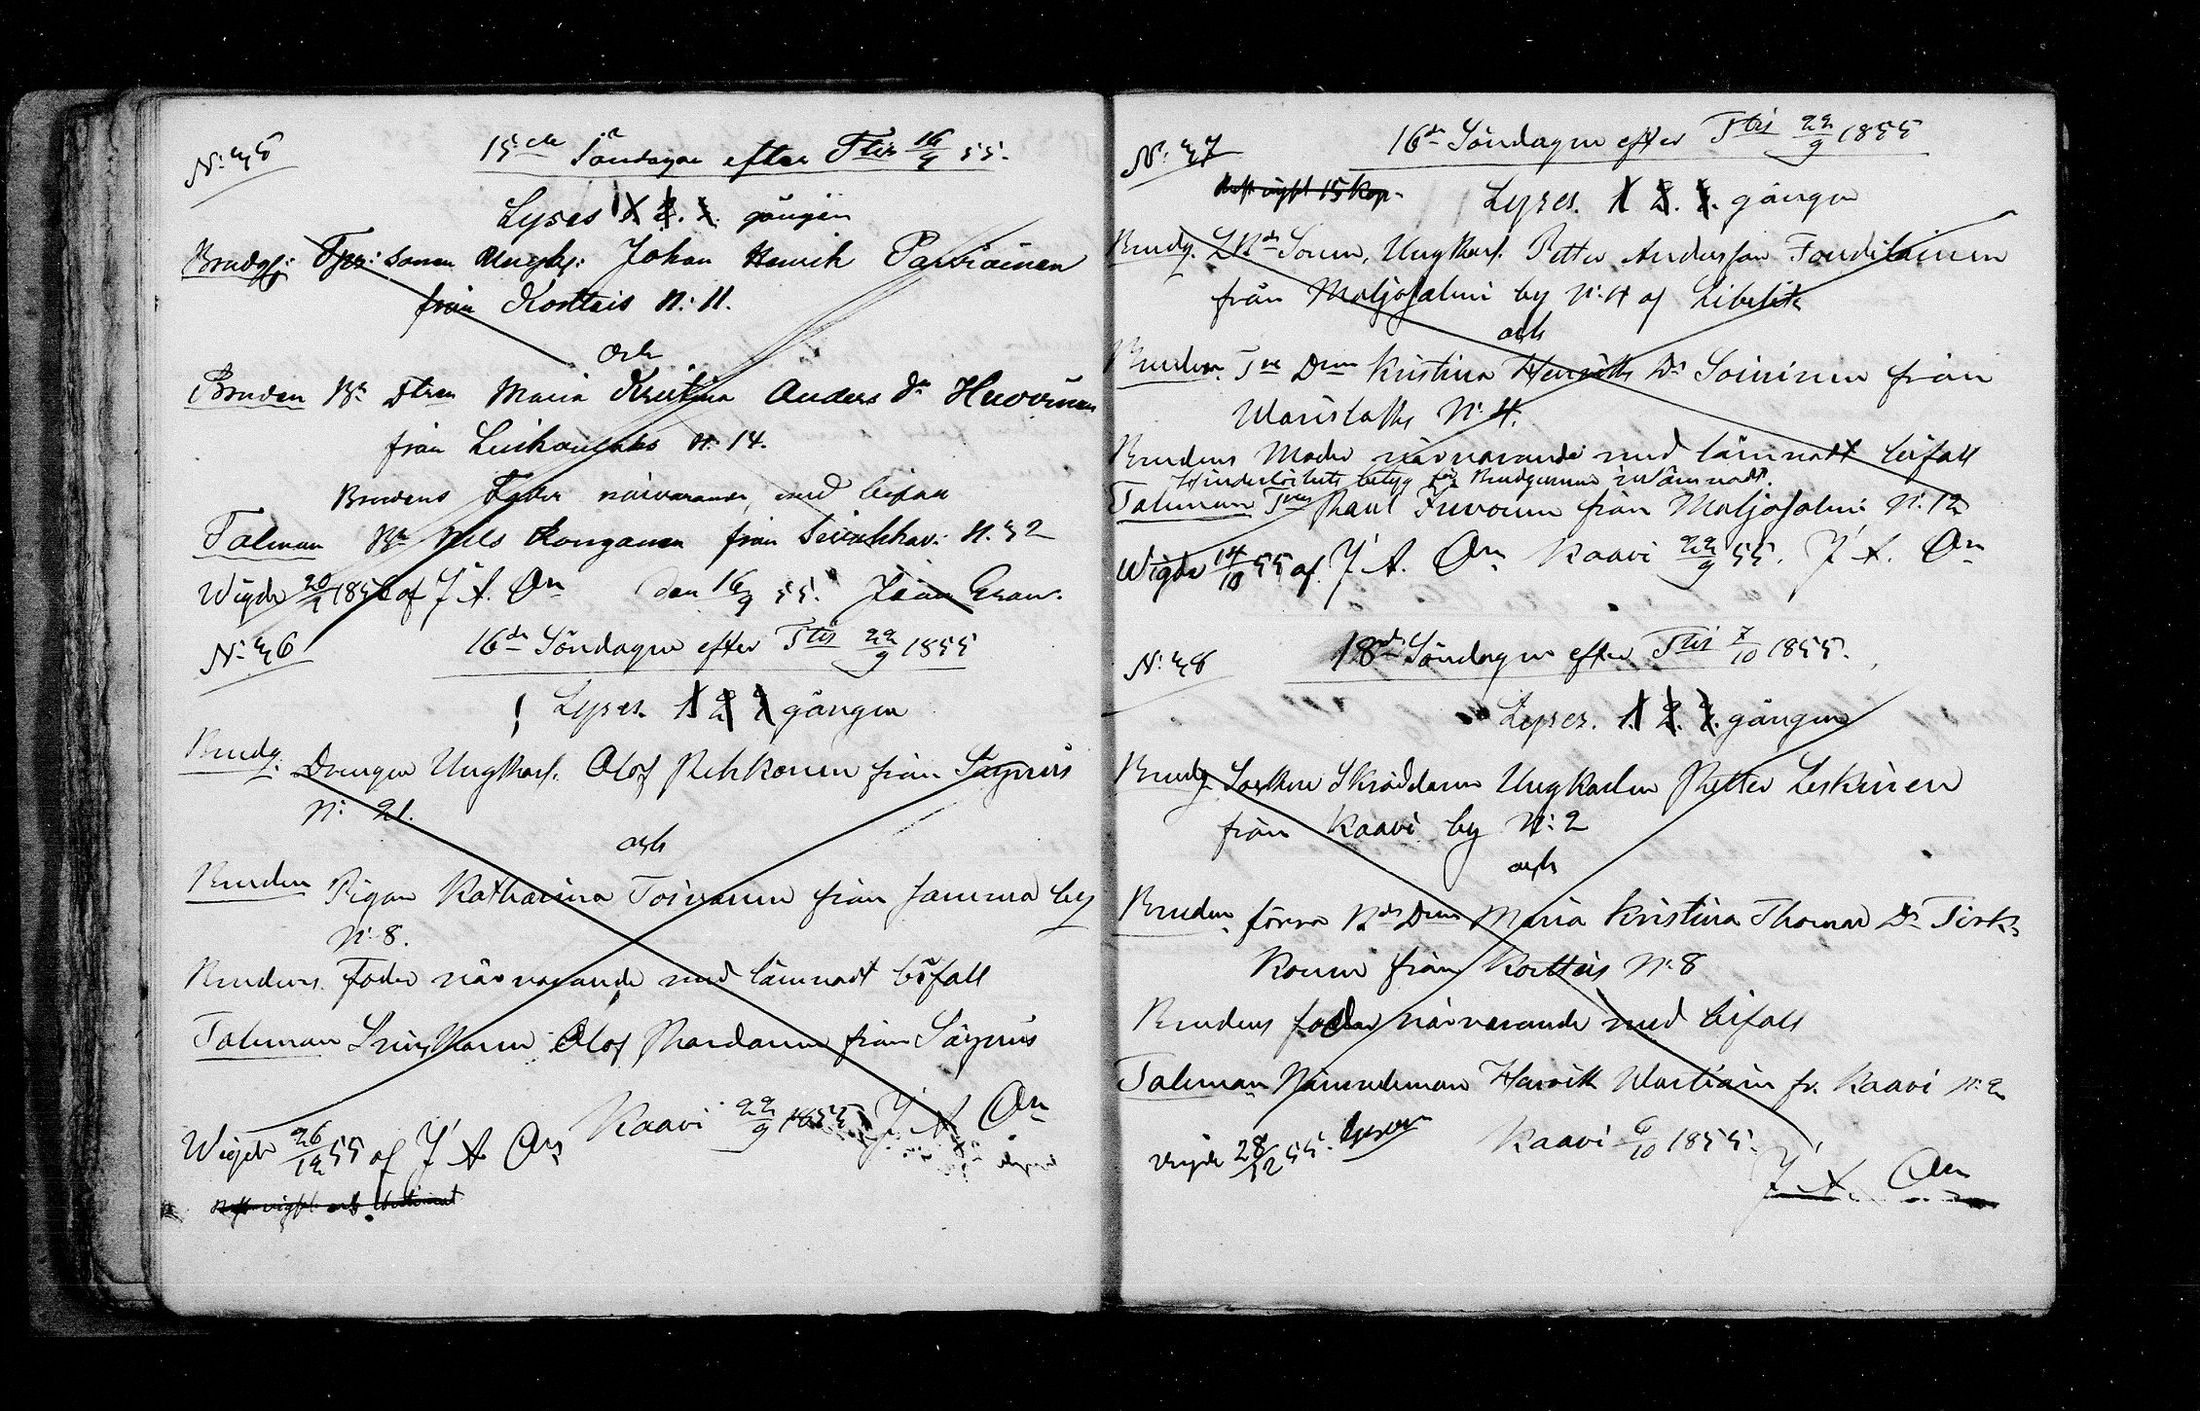 N: 45
15de Söndagen efter Ttis 16/9 55.
Lyses 1 2. 3. gången
Brudg: Tjur: Sonen Ungk: Johan Henrik Parviainen
från Kortteis N: 11.
och
Bruden Bn Dtren Maria Kristina Anders Dr Huovinen
från Luikonlaks N: 14.
Brudens Fader närvarande, med bifall
Talman Bn Nils Konganen från N. 32
Wigde 20/1 1856 af J. A. On den 16/9 55.
N: 46
16de Söndagen efter Ttis 22/9 1855
Lyses. 1 2 3 gången
Brudg. Drengen Ungkarl. Olof Rehkonen från Säyneis
N: 21.
och
Bruden Pigan Katharina Toivanen från Jamma by
N: 8.
Brudens Fader närvarande med lämnadt bifall
Talman Olof Pardanen från Säyneis
Kaavi 22/9 1855 J. A. On
Wigde 26/12 55 af J. A. On
N: 47
16de Söndagen efter Ttis 22/9 1855
15 Kop.
Lyses. 1 2. 3. gången
Brudg. Sonen, Ungkarl. Petter Andersson Fondilainen
från Maljosalmi by N: 4 af Libelits
och
Bruden Tre Dren Kristina Henriks Dr Soininen från
Warislaks N: 4.
Brudens Moder närvarande med lämnadt bifall
Hinderlöshets betyg för Brudgummen inlämnadt.
Talman Paul Juvonen från Maljosalmi N: 12
Wigde 14/10 55 af J. A. On Kaavi 22/9 55. J. A. On
N: 48
18de Söndagen efter Ttis 7/10 1855.
Lyses. 1. 2. 3. gången
Brudg. Socknen Skräddaren Ungkarlen Petter Leskinen
från Kaavi by N: 2
och
Bruden förra Dren Maria Kristina Thomas Dr Tirk-
konen från Kortteis N: 8
Brudens fader närvarande med bifall
Talman Nämndeman Henrik Wartiain fr. Kaavi N: 2
Wigde 28/12 55. Kaavi 6/10 1855.
J. A. On